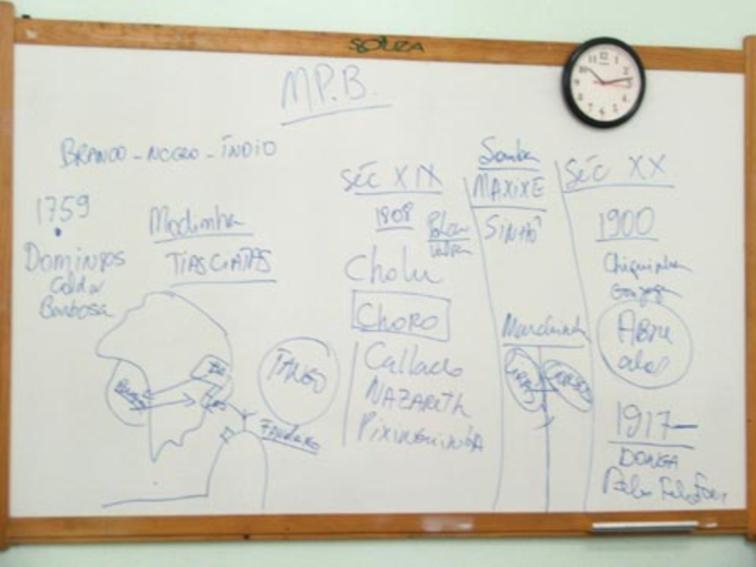 SOUZA
M.P.B.
BRANCO - NEGRO - ÍNDIO
1759
Domingos
Caldas
Barbosa
Modinha
TIAS CIATAS
TANGO
FANDANGO
SÉC XIX
1808
Polca
Valsa
CHORO
Callado
NAZARETH
PIXINGUINHA
Samba
MAXIXE
SINHÔ
Marchinha
SÉC XX
1900
Chiquinha
Gonzaga
ABRE
alas
1917
DONGA
Pelo Telefone